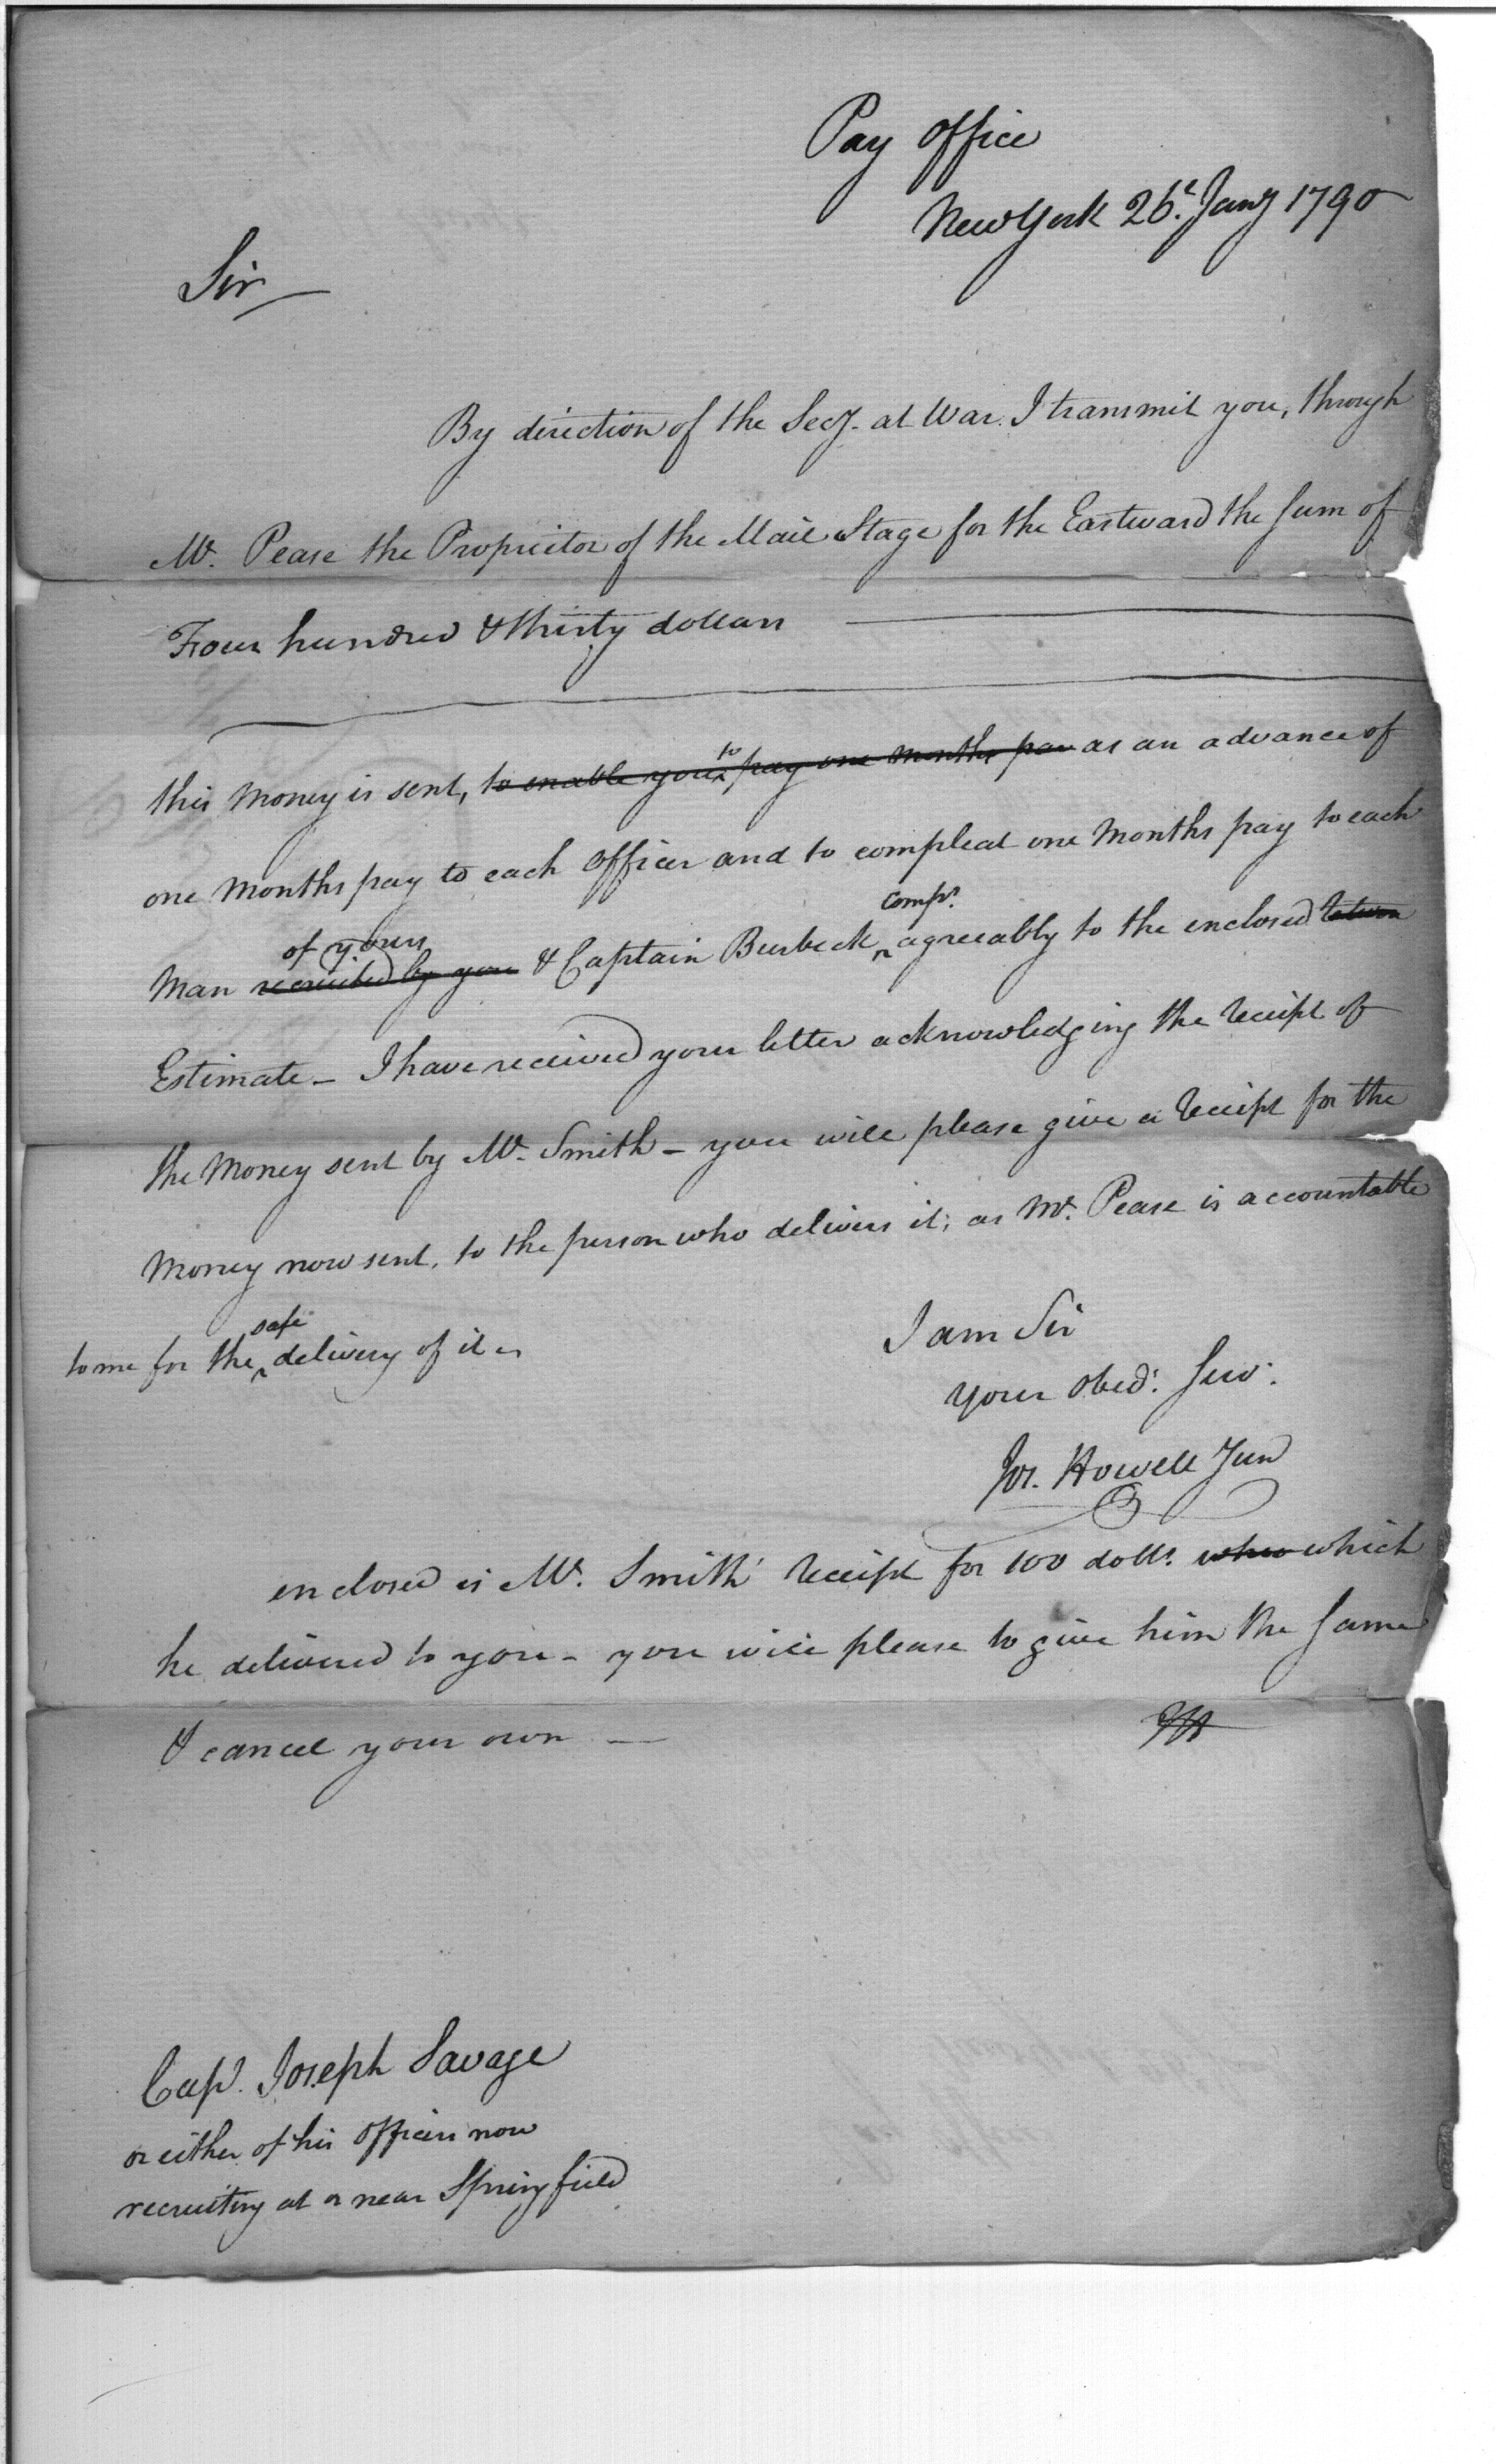 Pay Office
New York 26.t Jany 1790
Sir
By direction of the Secy. at War. I transmit you, through
Mr. Pease the Proprietor of the Mail Stage for the Eastward the Sum of
Four hundred & thirty dollars
this Money is sent, to enable you to pay one months pay as an advance of
one Months pay to each Officer and to compleat one Months pay to each
Man recruited by you of yours & Captain Burbeck comps. agreeably to the enclosed Return
Estimate - I have received your letter acknowledging the receipt of
the Money sent by Mr. Smith - you will please give a receipt for the
Money now sent, to the person who delivers it; as Mr. Pease is accountable
to me for the safe delivery of it -
I am Sir
your obed.t Serv.t
Jos. Howell Jun
enclosed is Mr. Smith' receipt for 100 dolls. which
he delivered to you - you will please to give him the same
& cancel your own -
JH
Capt. Joseph Savage
or either of his Officers now
recruiting at or near Springfield